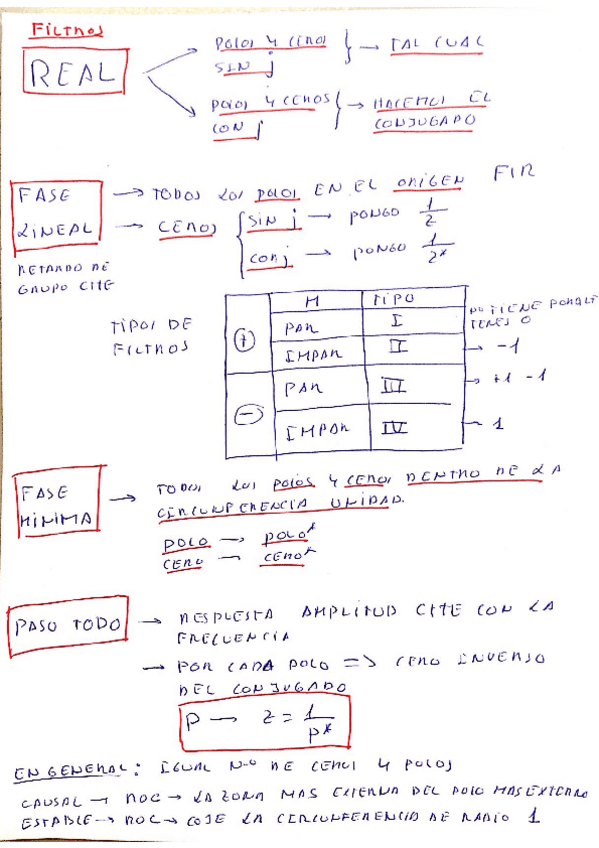 FILTROS
REAL
POLOS Y CEROS } → TAL CUAL
SIN j
POLOS Y CEROS } → HACEMOS EL
CON j CONJUGADO
FASE LINEAL → TODOS LOS POLOS EN EL ORIGEN FIR
→ CEROS { SIN j → PONGO 1/Z
CON j → PONGO 1/Z*
RETARDO DE
GRUPO CTTE
TIPOS DE
FILTROS
M TIPO
+ PAR I
IMPAR II → -1
- PAR III → +1 -1
IMPAR IV → 1
TIENE
CEROS
FASE MINIMA → TODOS LOS POLOS Y CEROS DENTRO DE LA
CIRCUNFERENCIA UNIDAD.
POLO → POLO*
CERO → CERO*
PASO TODO → RESPUESTA AMPLITUD CTTE CON LA
FRECUENCIA
→ POR CADA POLO => CERO INVERSO
DEL CONJUGADO
P → Z = 1/P*
EN GENERAL: IGUAL Nº DE CEROS Y POLOS
CAUSAL → ROC → LA ZONA MAS EXTERNA DEL POLO MAS EXTERNO
ESTABLE → ROC → COJE LA CIRCUNFERENCIA DE RADIO 1